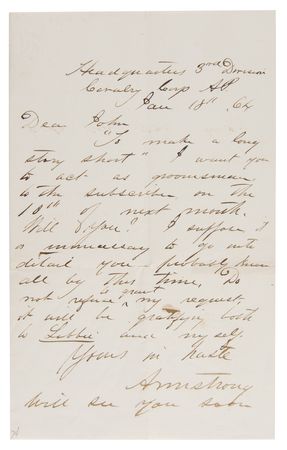 Headquarters 3rd Division
Cavalry Corp AP
Jan 18" 64
Dear John
"To make a long
story short" I want you
to act as groomsman
to the subscriber on the
10" of next month.
Will you? I suppose it
is unnecessary to go into
detail you probably know
all by this time. Do
not refuse to grant my request,
it will be gratifying both
to Libbie and myself.
Yours in haste
Armstrong
Will see you soon